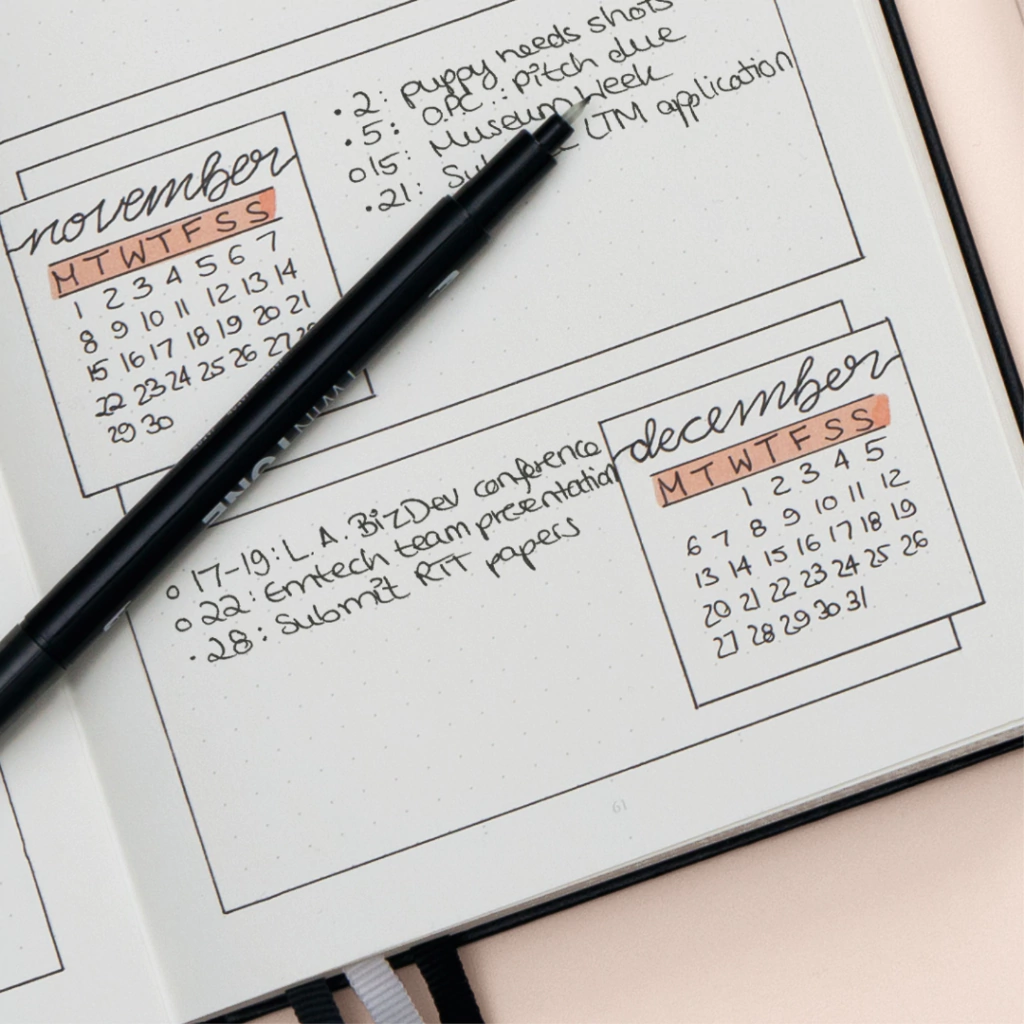 • 2: puppy needs shots
• 5: O.P.C.: pitch due
o 15: Museum Week
• 21: LTM application
november
M T W T F S S
1 2 3 4 5 6 7
8 9 10 11 12 13 14
15 16 17 18 19 20 21
22 23 24 25 26 27
29 30
december
M T W T F S S
1 2 3 4 5
6 7 8 9 10 11 12
13 14 15 16 17 18 19
20 21 22 23 24 25 26
27 28 29 30 31
o 17-19: L.A. BizDev conference
o 22: Emtech team presentation
• 28: Submit RIT papers
61